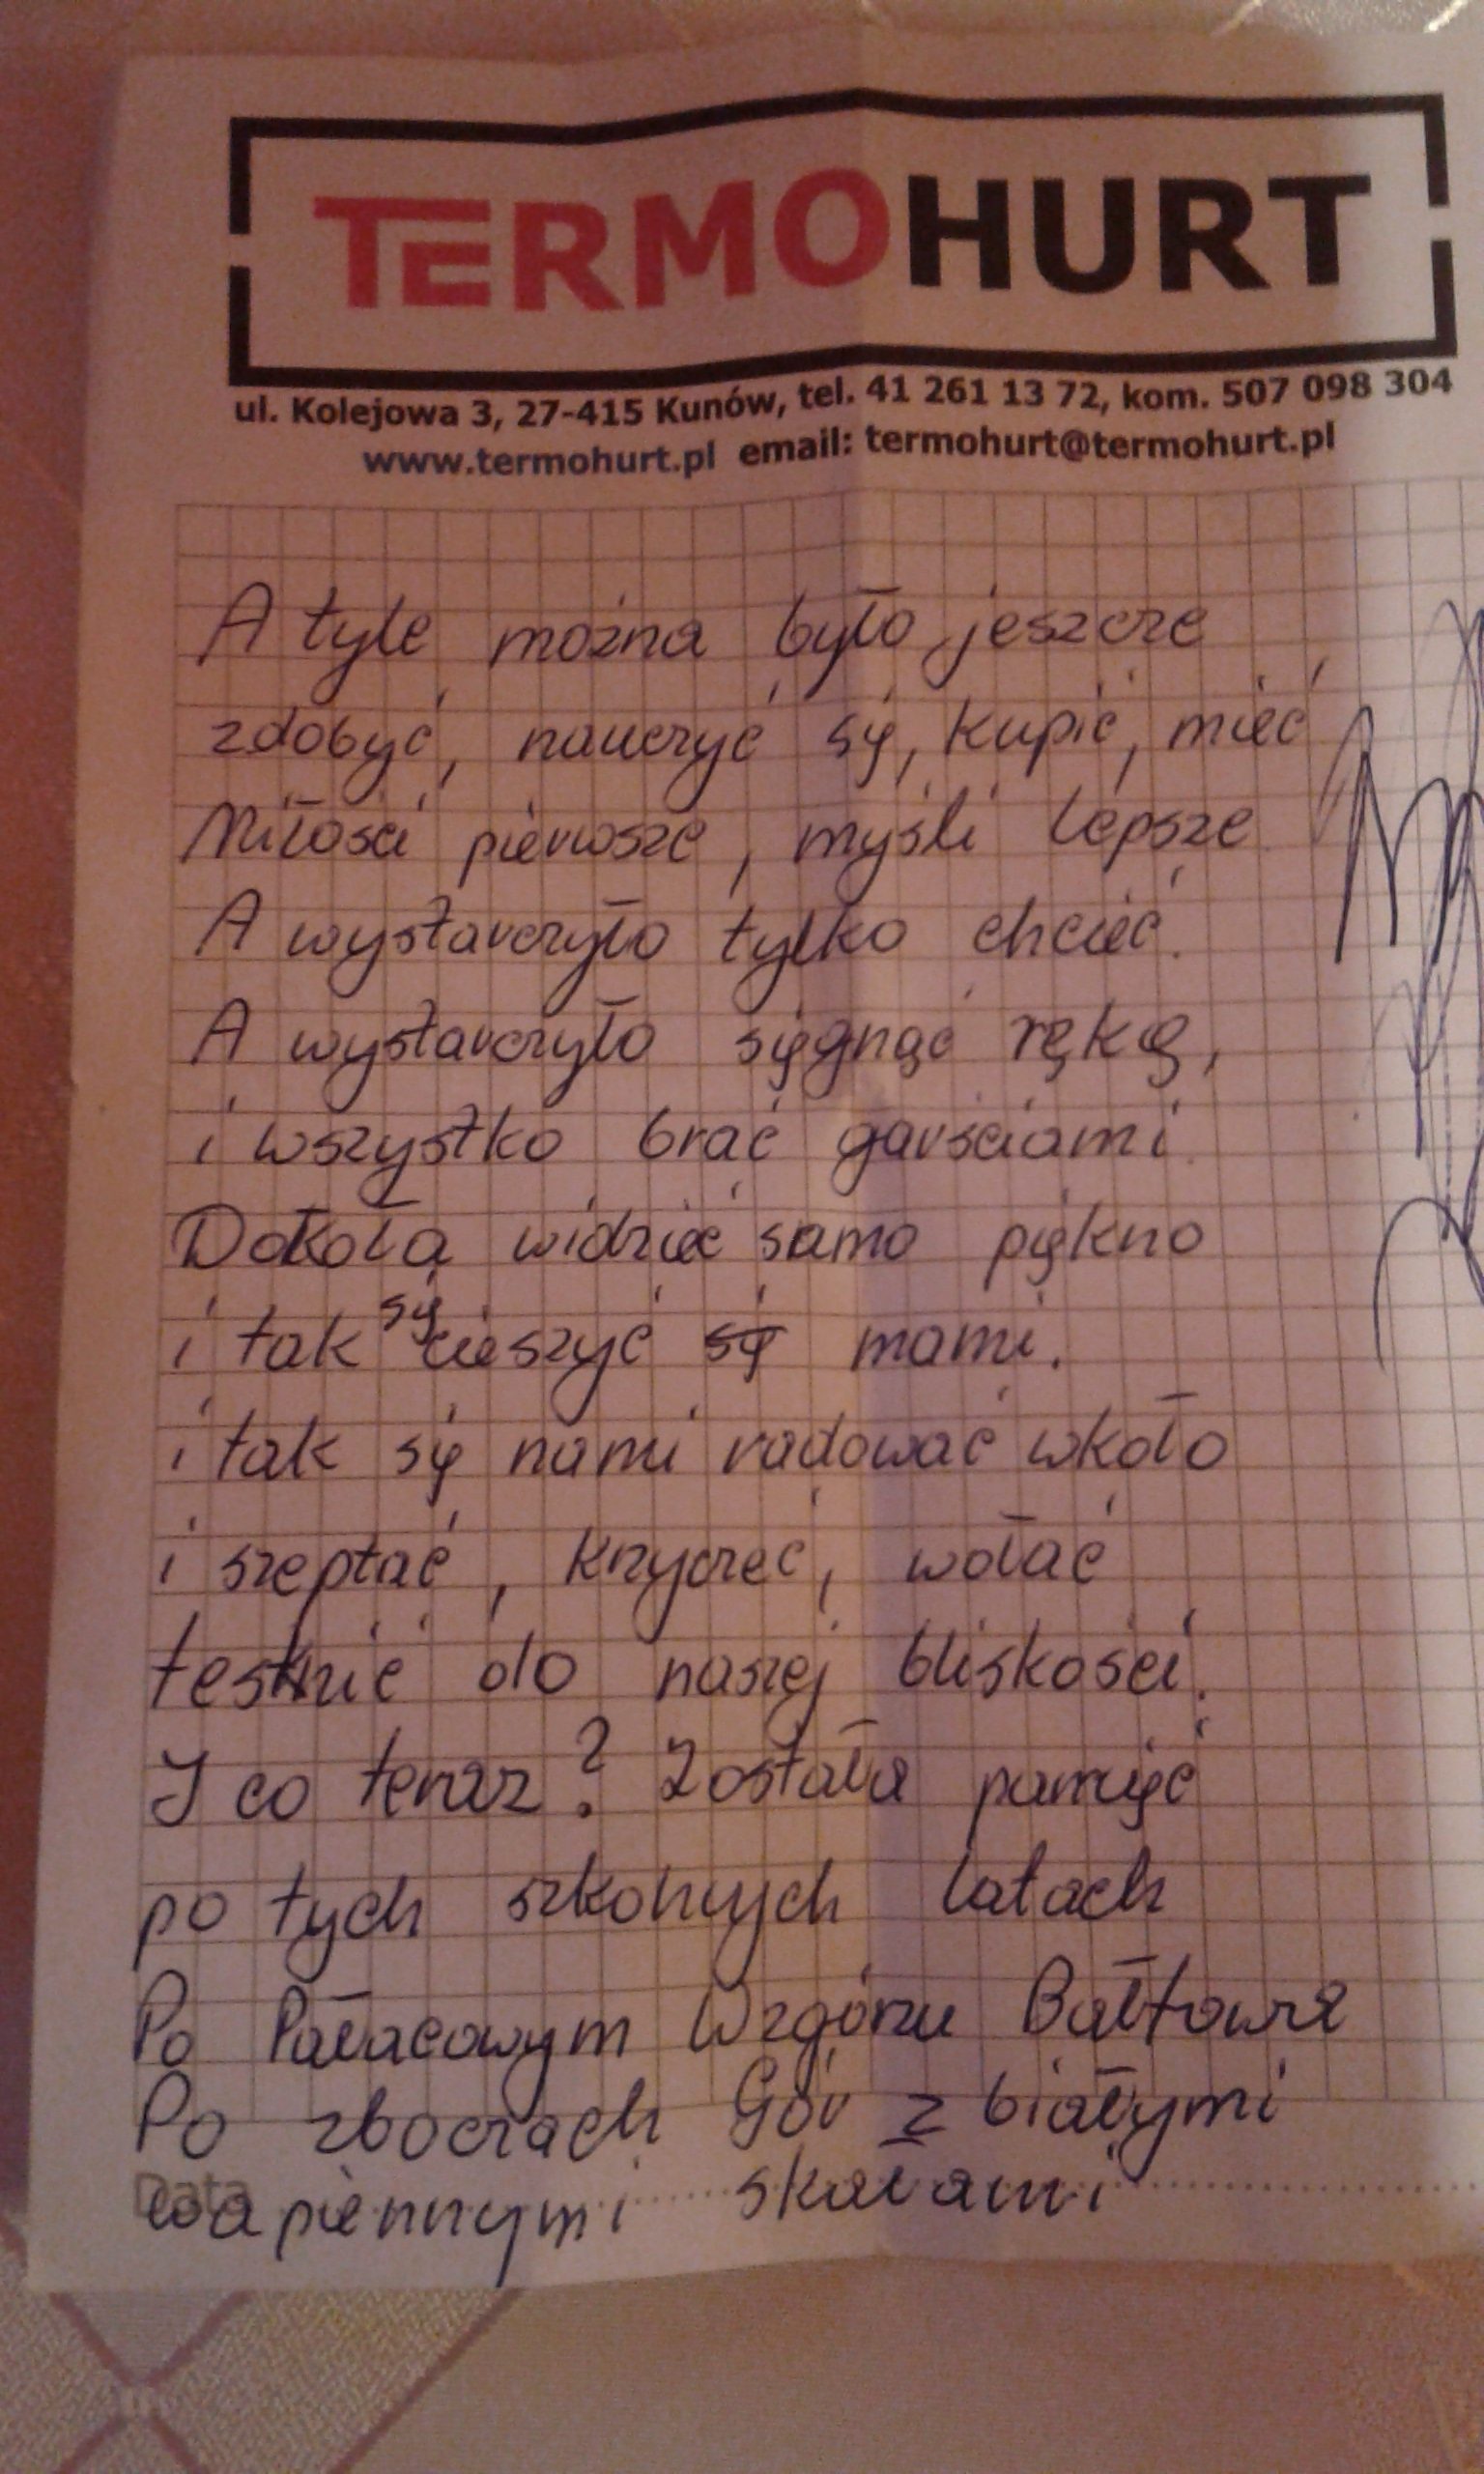 TERMOHURT
ul. Kolejowa 3, 27-415 Kunów, tel. 41 261 13 72, kom. 507 098 304
www.termohurt.pl email: termohurt@termohurt.pl
A tyle można było jeszcze
zdobyć, nauczyć się, kupić, mieć
Miłości pierwsze, myśli lepsze
A wystarczyło tylko chcieć.
A wystarczyło sięgnąć ręką,
i wszystko brać garściami.
Dokoła widzieć samo piękno
i tak się cieszyć się mami.
i tak się nami radować wkoło
i szeptać, krzyczeć, wołać
tesknić do naszej bliskości.
I co teraz? Została pamięć
po tych szkolnych latach
Po Pałacowym Wzgórzu Bałtowa
Po zboczach Gór z białymi
Data
wapiennymi skałami